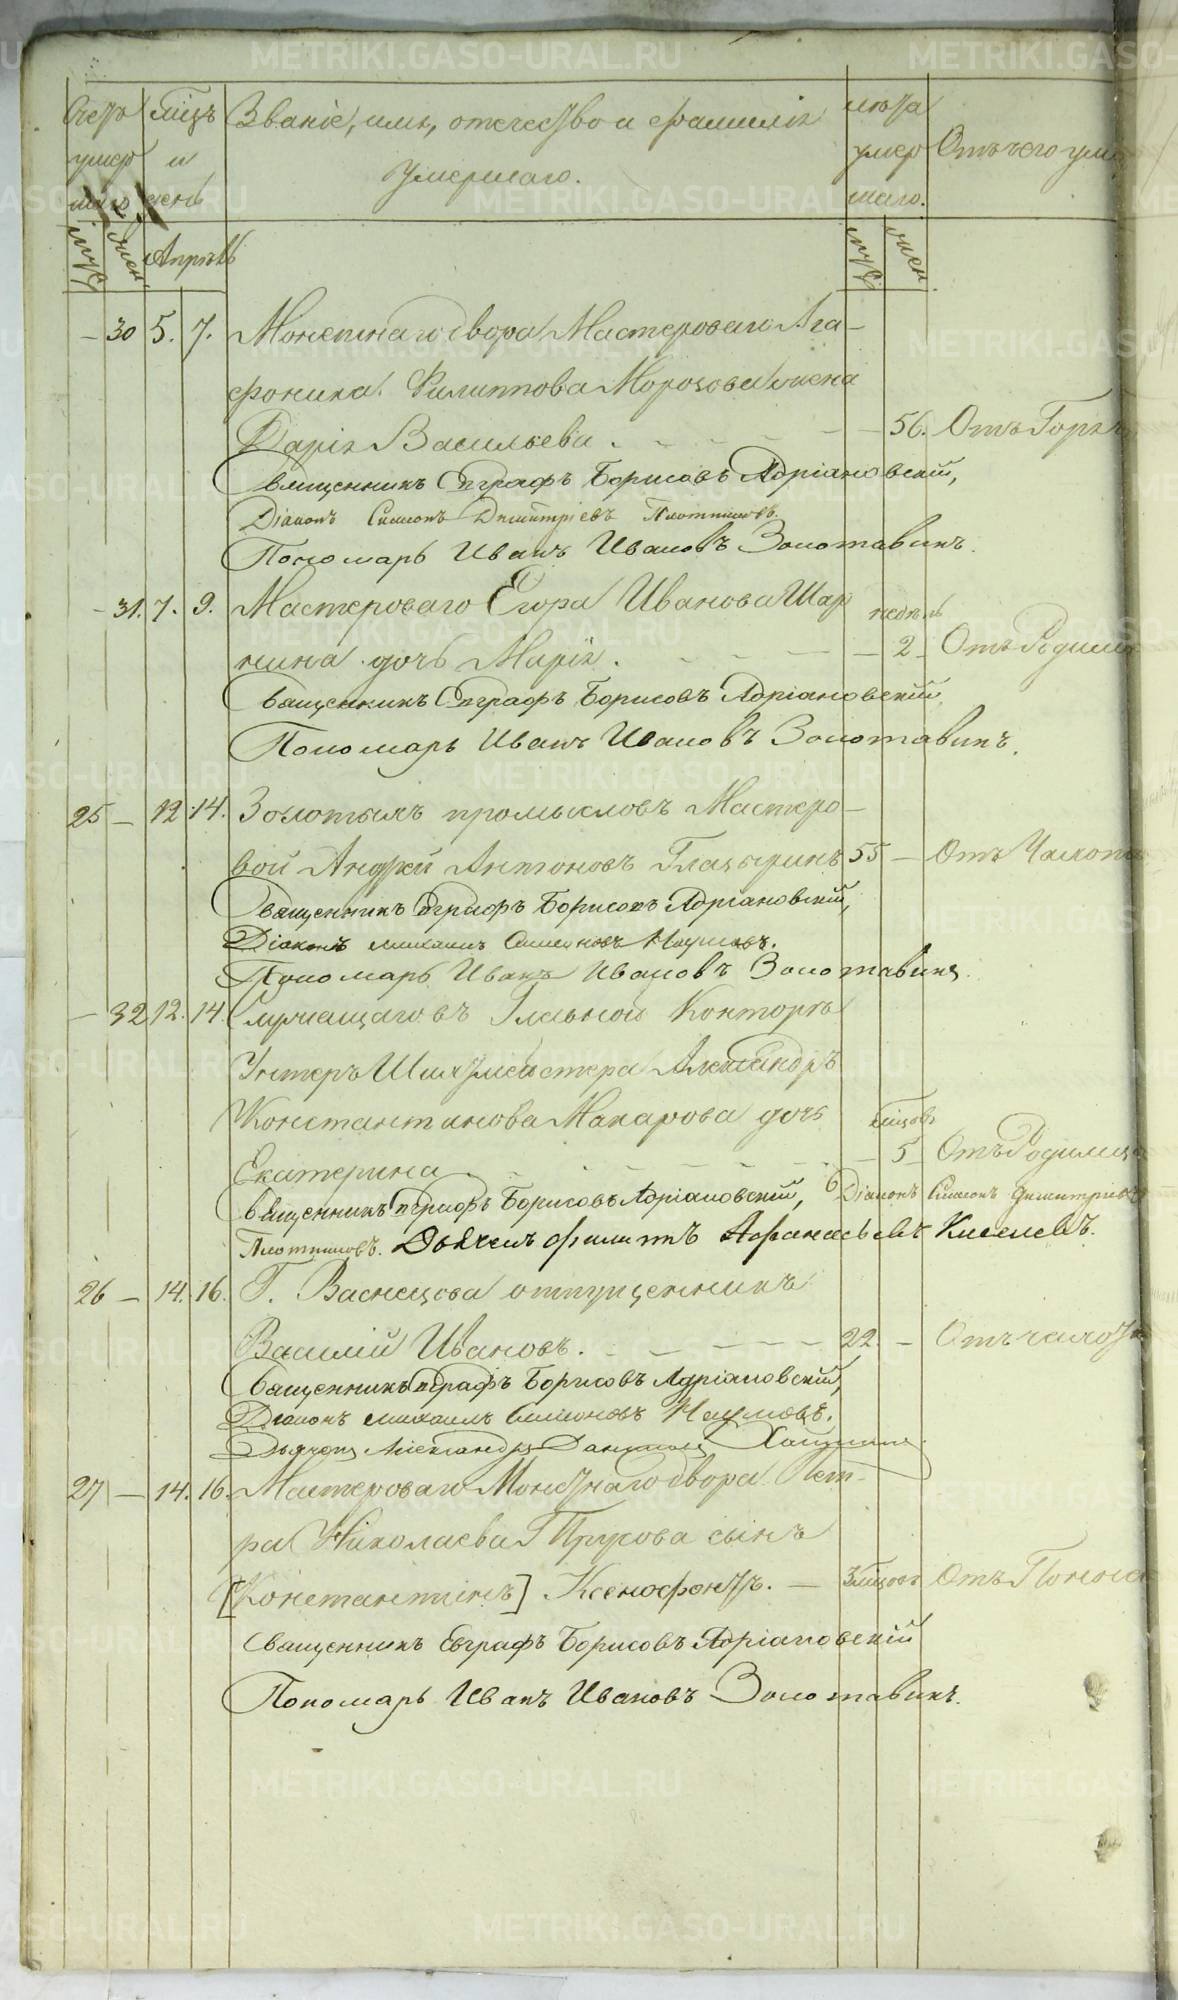 Счетъ Мцъ Званіе, имя, отечество и фамилія лѣта Отъ чего
умер и умершаго. умер
шаго день шаго.
муж. жен. Апрѣль муж. жен.
— 30 5. 7. Монетнаго двора Мастероваго Ага-
фоника Филиппова Морозова жена
Дарія Васильева. — 56. Отъ Горяч
Священникъ Евграфъ Борисовъ Адріановскій,
Діаконъ Симеонъ Димитріевъ Плотниковъ.
Пономарь Иванъ Ивановъ Золотавинъ.
— 31. 7. 9. Мастероваго Егора Иванова Шар недѣль
нина дочь Марія. — 2 Отъ Родим
Священникъ Евграфъ Борисовъ Адріановскій,
Пономарь Иванъ Ивановъ Золотавинъ.
25 — 12 14. Золотыхъ промысловъ Мастеро-
вой Андрей Антоновъ Глазыринъ 55 — Отъ Чахот
Священникъ Евграфъ Борисовъ Адріановскій,
Діаконъ Михаилъ Симеоновъ Наумовъ.
Пономарь Иванъ Ивановъ Золотавинъ.
— 32 12. 14. Служащаго въ Главной Конторѣ
Унтеръ Шихтмейстера Александръ
Константинова Макарова дочь мцовъ
Екатерина — 5 Отъ Родимца
Священникъ Евграфъ Борисовъ Адріановскій, Діаконъ Симеонъ Димитріевъ
Плотниковъ. Дьячекъ Филиппъ Афанасьевъ Киселевъ.
26 — 14. 16. Г. Васнецова отпущенникъ
Василій Ивановъ. — 22. — Отъ чахот
Священникъ Евграфъ Борисовъ Адріановскій,
Діаконъ Михаилъ Симеоновъ Наумовъ.
Дьячекъ Александръ
27 — 14. 16. Мастероваго Монетнаго двора Пет-
ра Николаева сынъ
[Константинъ] Ксенофонтъ. — 3 мцовъ Отъ Поноса
Священникъ Евграфъ Борисовъ Адріановскій
Пономарь Иванъ Ивановъ Золотавинъ.
METRIKI.GASO-URAL.RU